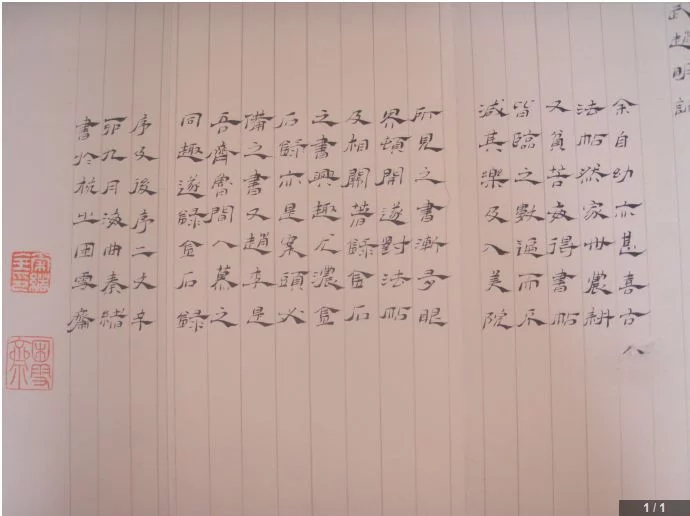 趙明
余自幼亦甚喜古人
法帖然家世農耕
又貧苦每得書帖
皆臨之數過而不
減其樂及入美院
所見之書漸多眼
界頓開遂對法帖
及相關著錄金石
之書興趣尤濃金
石錄亦是案頭必
備之書又趙李是
吾齊魯間人慕之
同趣遂錄金石錄
序及後序二文辛
卯九月海曲秦緒
書於杭之困雪齋
1 / 1